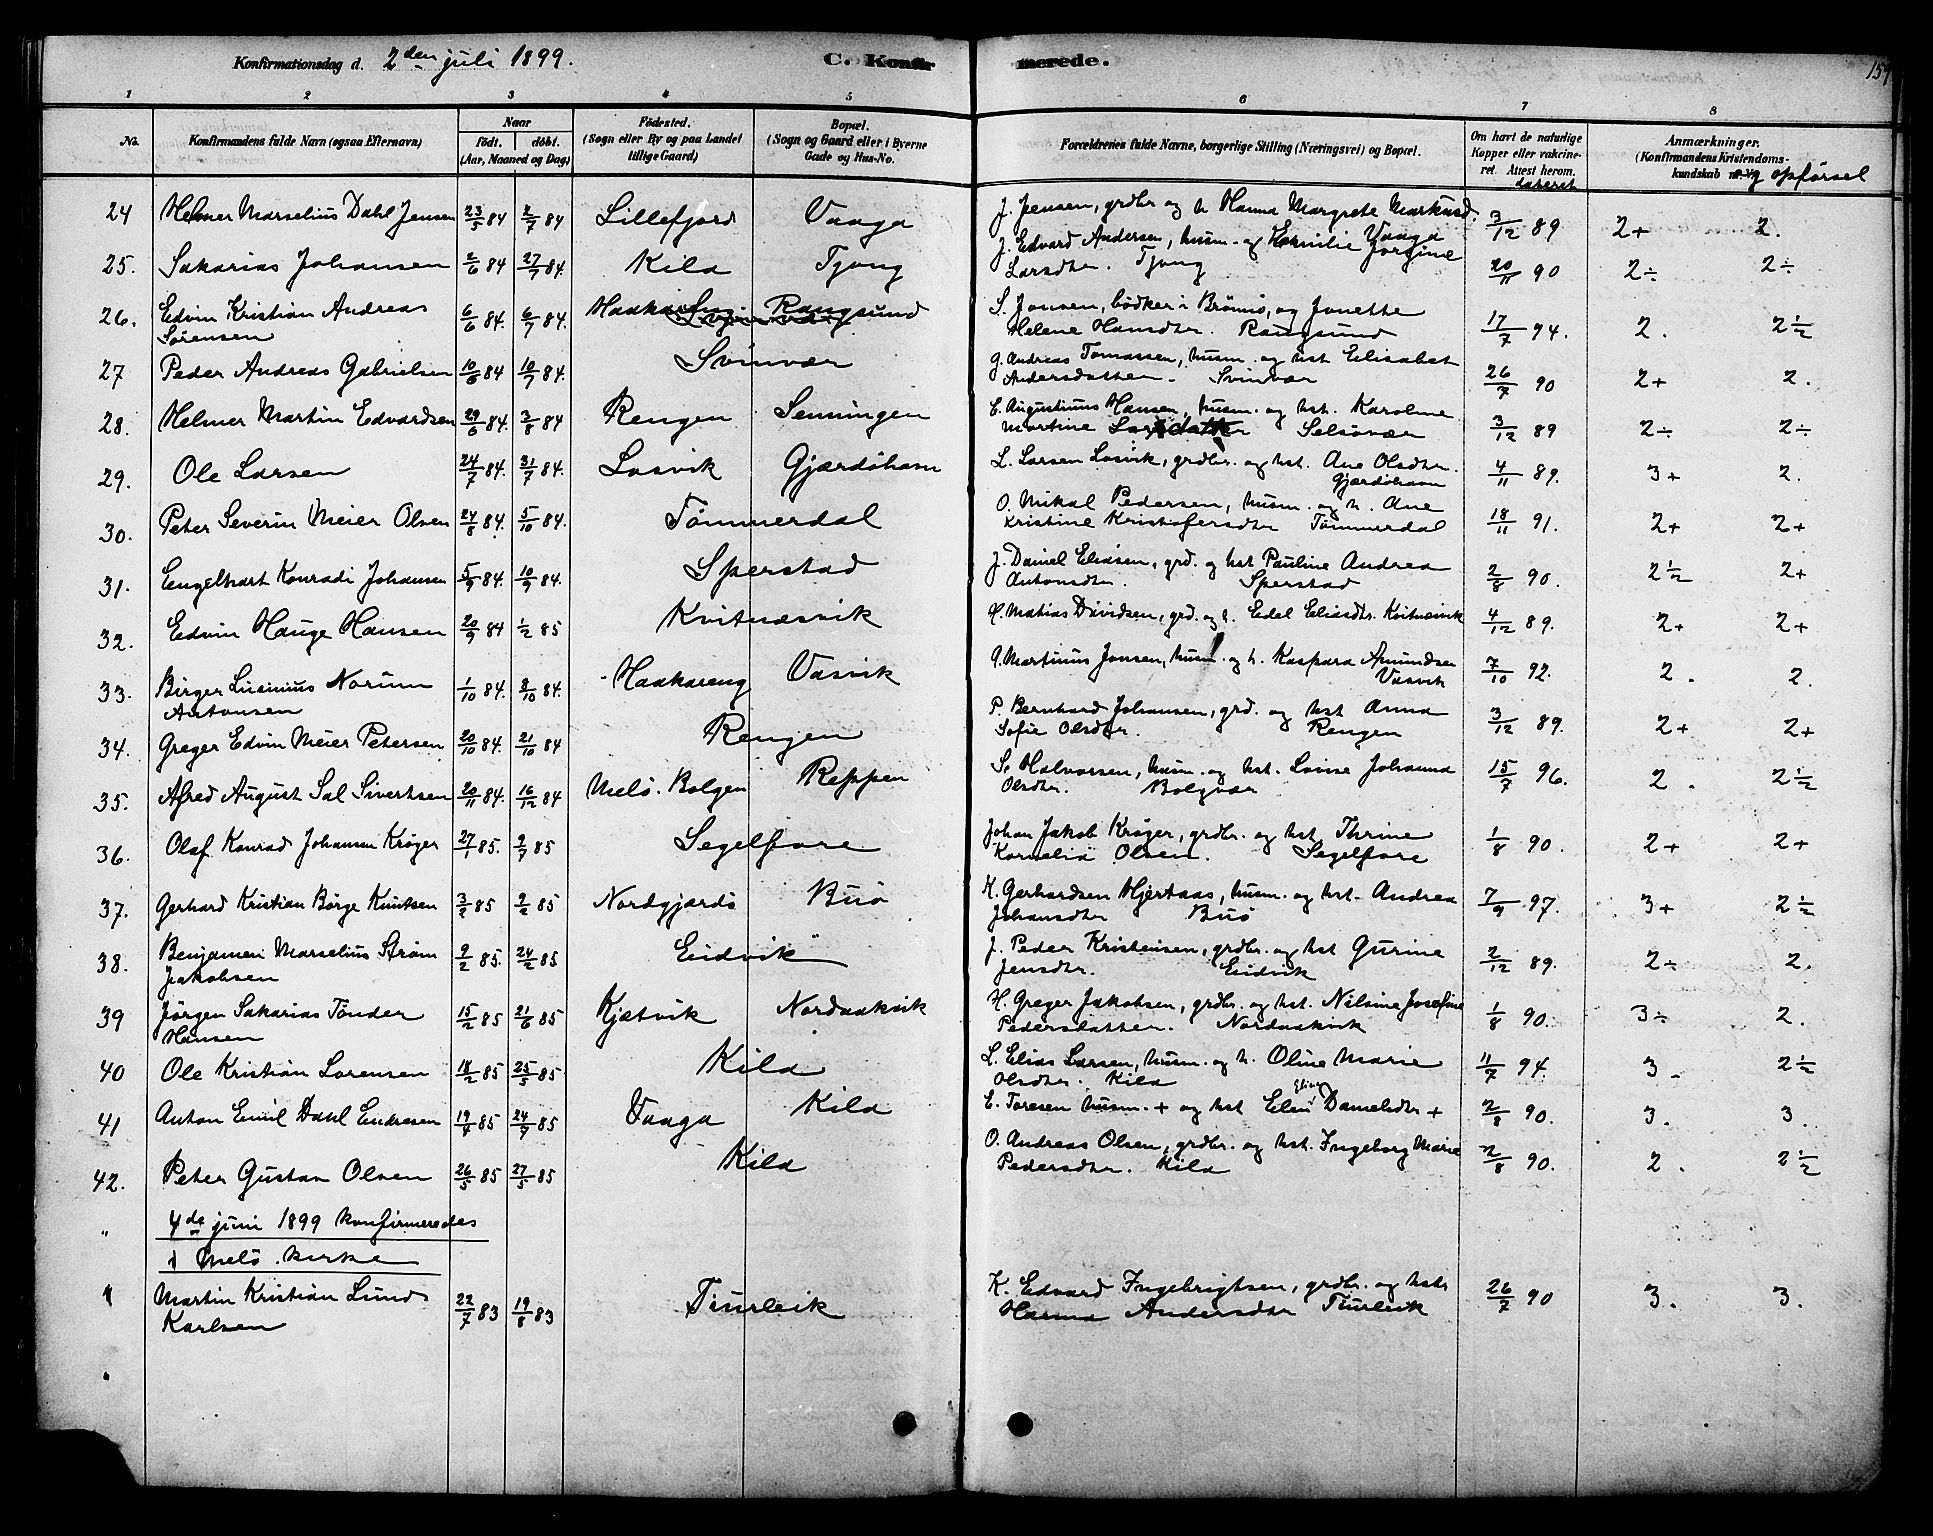 Konfirmationsdag d. 2den juli 1899.
C. Konfirmerede.
159
1 2 3 4 5 6 7 8
No. Konfirmandens fulde Navn (ogsaa Efternavn) Naar født. døbt. (Aar, Maaned og Dag) Fødested. (Sogn eller By og paa Landet tillige Gaard) Bopæl. (Sogn og Gaard eller i Byerne Gade og Hus-No. Forældrenes fulde Navne, borgerlige Stilling (Næringsvei) og Bopæl. Om havt de naturlige Kopper eller vakcineret. Attest herom. dateret Anmærkninger. (Konfirmandens Kristendomskundskab og opførsel
24 Helmer Marselius Dahl Jensen 23/5 84 2/7 84 Lillefjord Vaaga J. Jensen, grdbr og h Hanna Margrete Markusd. Vaaga 3/12 89 2+ 2.
25. Sakarias Johansen 2/6 84 27/7 84. Kila Tjong J. Edvard Andersen, husm. og Emilie Jørgine
Larsdtr. Tjong 20/11 90 2÷ 2÷
26. Edvin Kristian Andreas
Sørensen 6/6 84. 6/7 84. Haakareng Rangsund S. Jonsen, bødker i Brønnø, og Jonette
Helene Hansdtr. Rangsund 17/7 94. 2. 2½
27 Peder Andreas Gabrielsen 10/6 84 10/7 84. Svinvær G. Andreas Tomassen, husm. og hst Elisabet
Andersdatter. Svinvær 26/7 90 2+ 2.
28. Helmer Martin Edvardsen 29/6 84. 3/8 84 Rengen Senningen E. Augustinus Hansen, husm. og hst. Karoline
Martine Larsdatter Selsøvær 3/12 89 2÷ 2÷
29. Ole Larsen 24/7 84. 31/7 84. Losvik Gjærdøhavn L. Larsen Losvik, grdbr. og hst. Ane Olsdtr.
Gjærdøhavn 4/11 89. 3+ 2.
30. Peter Severin Meier Olsen 24/8 84. 5/10 84. Tømmerdal O. Mikal Pedersen, husm. og h. Ane
Kristine Kristofersdtr Tømmerdal 18/11 91. 2+ 2+
31. Engelhart Konradi Johansen 5/9 84. 10/9 84. Sperstad J. Daniel Eliasen, grd. og hst Pauline Andrea
Antonsdtr. Sperstad 2/8 90. 2½ 2+
32. Edvin Hauge Hansen 20/9 84 1/2 85 Kvitnæsvik H. Matias Davidsen, grd. og h. Edel Eliasdtr. Kvitnæsvik 4/12 89. 2+ 2+
33. Birger Lusinius Norum
Antonsen 1/10 84. 8/10 84. Haakareng Vasvik A. Martinus Jonsen, husm. og h. Kaspara Amundsen
Vasvik 7/10 92. 2. 2.
34. Greger Edvin Meier Petersen 20/10 84. 21/10 84 Rengen P. Bernhard Johansen, grd. og hst Anna
Sofie Olsdtr. Rengen 3/12 89. 2+ 2+
35. Alfred August Sal Sivertsen 20/11 84. 16/12 84 Melø. Bolgen Reppen S. Halvorsen, husm. og hst. Lovise Johanna
Olsdtr. Bolgvær 15/7 96. 2. 2½
36. Olaf Konrad Johansen Krøger 27/1 85. 2/7 85 Segelfore Johan Jakob Krøger, grdbr. og hst Thrine
Kornelia Olsen. Segelfore 1/8 90. 2+ 2+
37. Gerhard Kristian Børge Knutsen 3/2 85 9/2 85 Nordgjærdø Buø K. Gerhardsen Hjertaas, husm. og hst. Andrea
Johansdtr Buø 7/9 97. 3+ 2½
38. Benjamen Marselius Strøm
Jakobsen 9/2 85. 24/2 85 Eidvik J. Peder Kristensen, grdbr. og hst Gurine
Jensdtr. Eidvik 2/12 89. 2÷ 2.
39 Jørgen Sakarias Tønder
Hansen 15/2 85 21/6 85 Kjætvik Nordnakvik H. Greger Jakobsen, grdbr. og hst. Nilsine Josefine
Pedersdatter. Nordnakvik 1/8 90. 3÷ 2.
40 Ole Kristian Lorensen 18/2 85 25/5 85 Kila L. Elias Larsen, husm. og h. Oline Marie
Olsdtr. Kila 11/7 94. 3 - 2½
41 Anton Emil Dahl Endresen 19/4 85 24/7 85 Vaaga Kila E. Toresen husm. + og hst Elen Danielsdtr + 2/8 90. 3. 3.
42. Peter Gustav Olsen 26/5 85 27/5 85 Kila O. Andreas Olsen, grdbr. og hst. Ingeborg Marie
Pedersdtr. Kila 2/8 90. 2. 2½
" 4de juni 1899 konfirmeredes
i Melø kirke
Martin Kristian Lund
Karlsen 22/7 83 19/8 83 K. Edvard Ingebrigtsen, grdbr. og hstr
Hanna Andersdtr 26/7 90 3. 3.